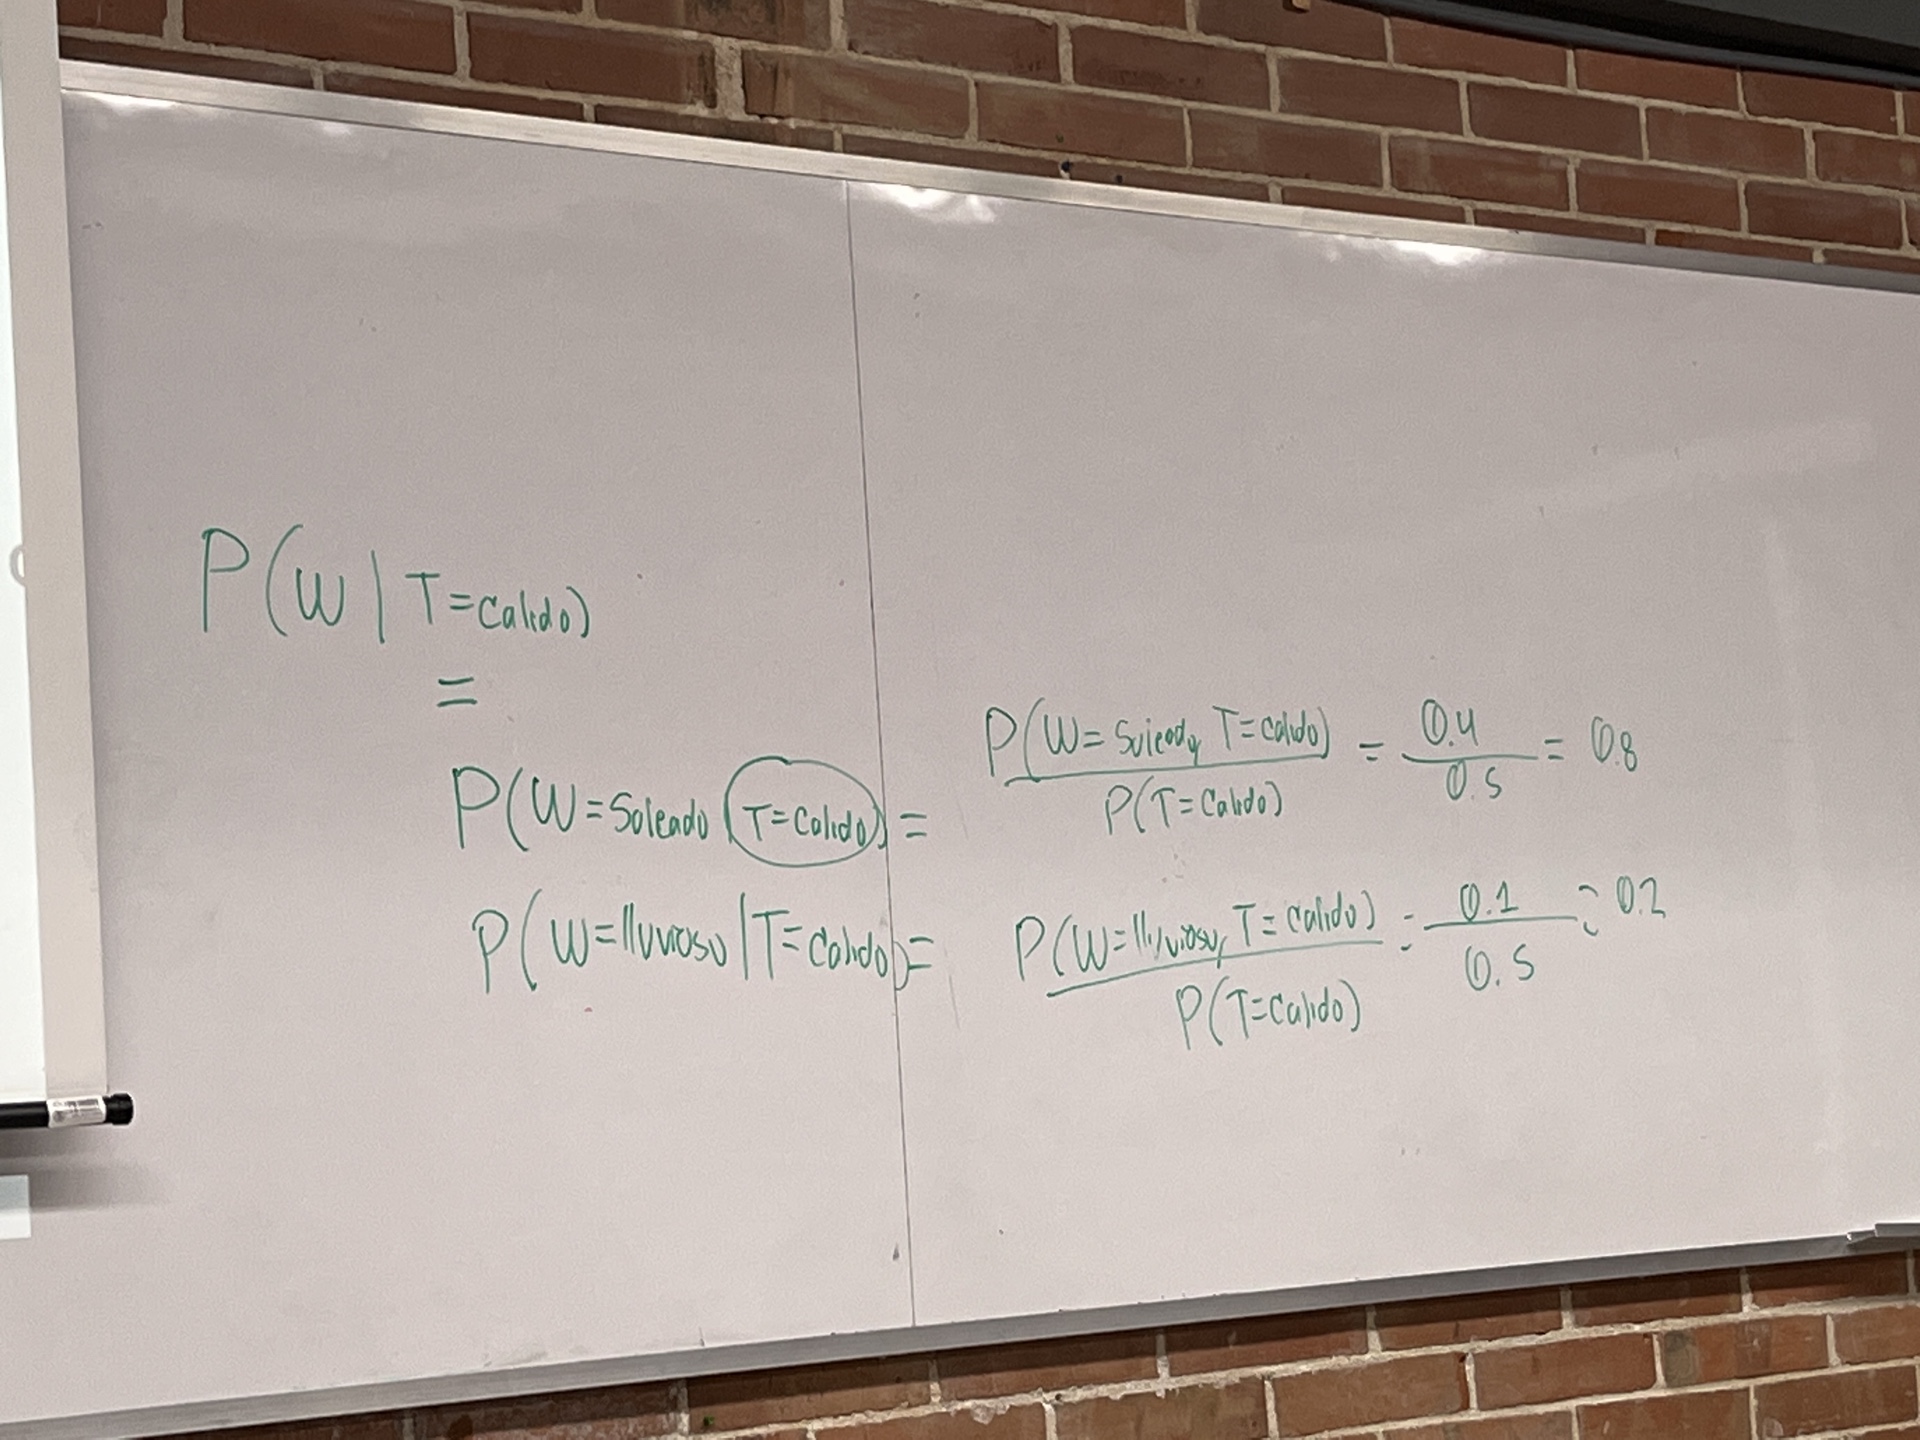 P(W | T=Calido)
=
P(W=Soleado | T=Calido) = P(W=Soleado, T=Calido) / P(T=Calido) = 0.4 / 0.5 = 0.8
P(W=lluvioso | T=Calido) = P(W=lluvioso, T=Calido) / P(T=Calido) = 0.1 / 0.5 = 0.2